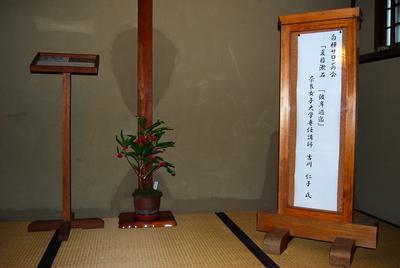 白樺サロンの会
「夏目漱石 「彼岸過迄」
奈良女子大学専任講師 吉川 仁子 氏